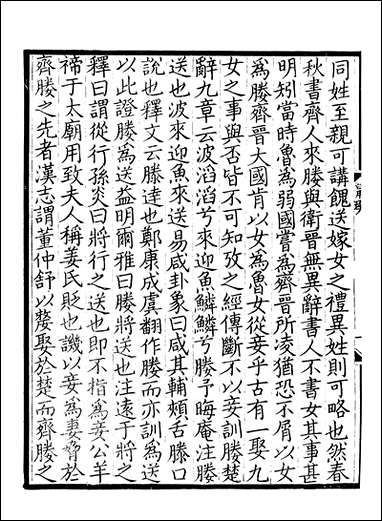 同姓至親可講餽送嫁女之禮異姓則可略也然春
秋書齊人來媵與衛晉無異辭書人不書女其事甚
明矧當時魯為弱國嘗為齊晉所凌猶恐不屑以女
為媵齊晉大國肯以女為魯女從妾乎古有一娶九
女之事與否皆不可知攷之經傳斷不以妾訓媵楚
辭九章云波滔滔兮來迎魚鱗鱗兮媵予晦庵注媵
送也波來迎魚來送易咸卦象曰咸其輔頰舌媵口
說也釋文云媵達也鄭康成虞翻作媵而亦訓為送
以此證媵為送益明爾雅曰媵將送也注遠于將之
釋曰謂從行孫炎曰將行之送也即不指為妾公羊
禘于太廟用致夫人稱姜氏貶也譏以妾為妻脅於
齊媵之先者漢志謂董仲舒以釐娶於楚而齊媵之